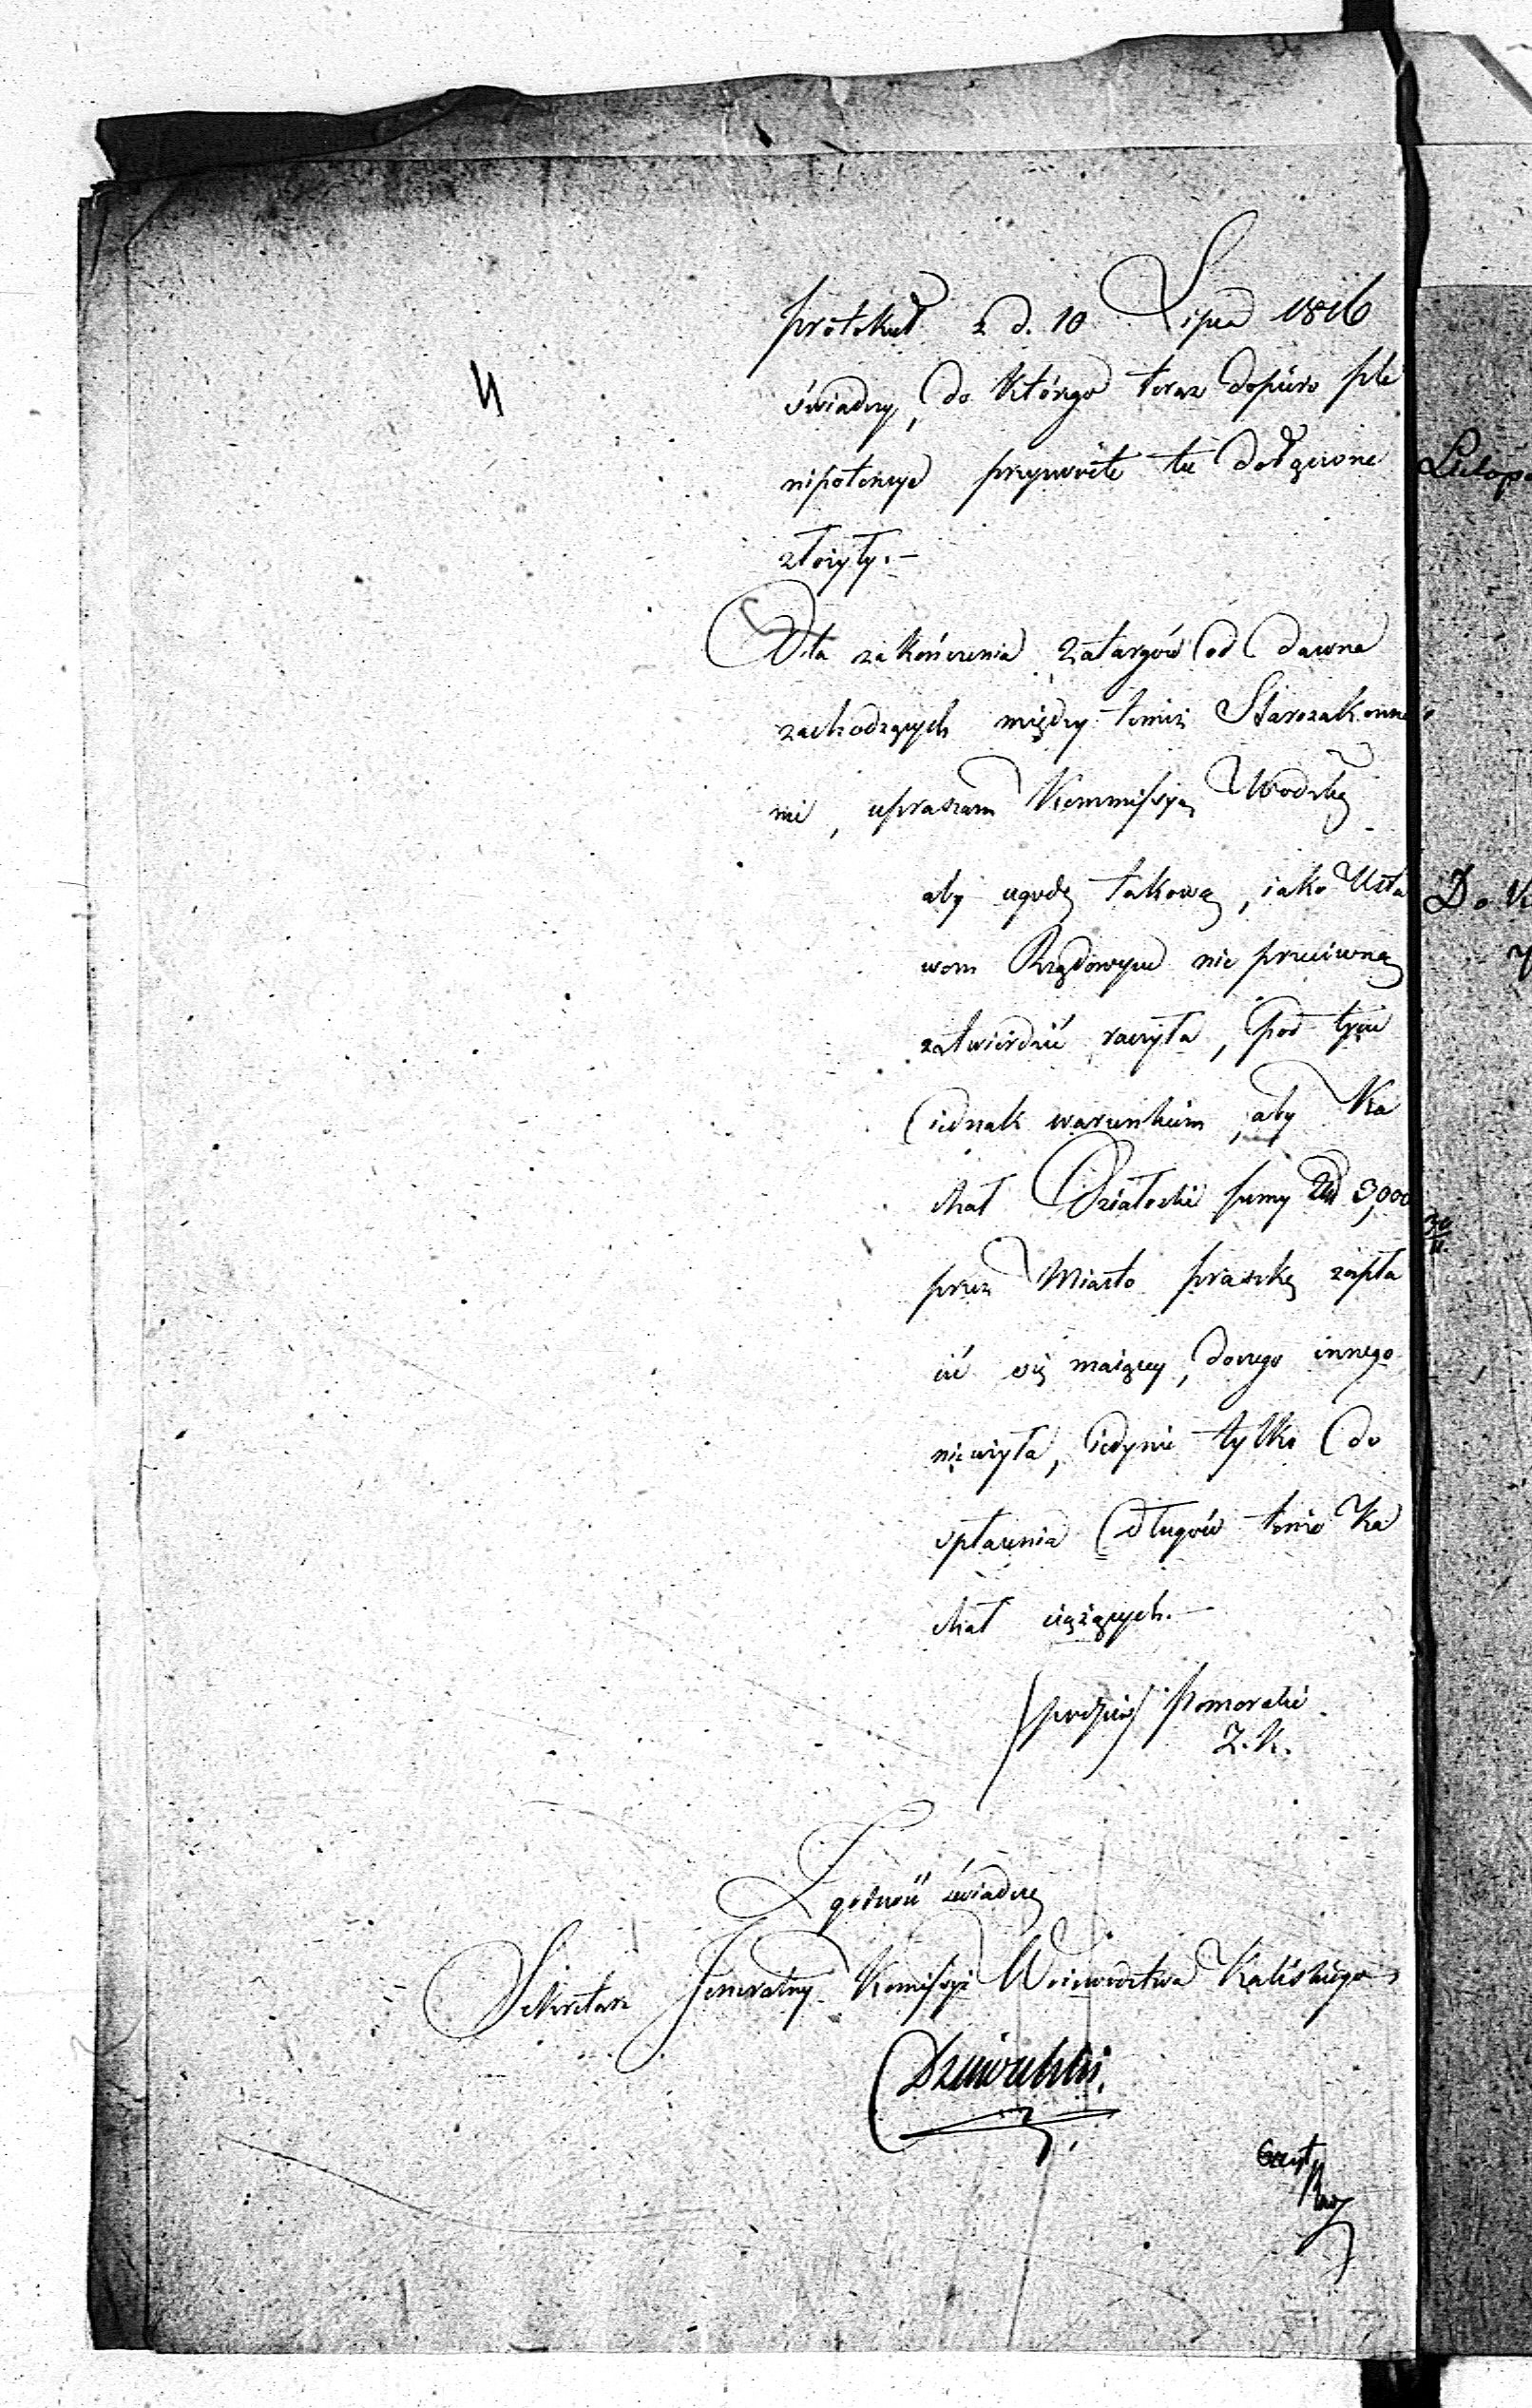 protokuł z d. 10 Lipca 1816
świadczy, do którego teraz dopiero ple
nipotencye przyzwoite tu dołączone
złożyły.—
Dla zakończenia zatargów od dawna
zachodzących między temiż Starozakonne
mi, upraszam Kommissyą Wodzką
aby ugodę takową, iako Usta
wom Rządowym nie przeciwną
zatwierdzić raczyła, pod tym
iednak warunkiem, aby Ka
chał Działoski sumy Złł 3,000
przez Miasto Praszkę zapła
cić się maiącey, doczego innego
nieużyła, iedynie tylko do
spłacenia długów tenże Ka
chał ciążących.—
/podpis/ Pomorski
Z. K.
Zgodność świadczę
Sekretarz Jeneralny Komissyi Woiewództwa Kaliskiego
Lutop
Do K
30
11.